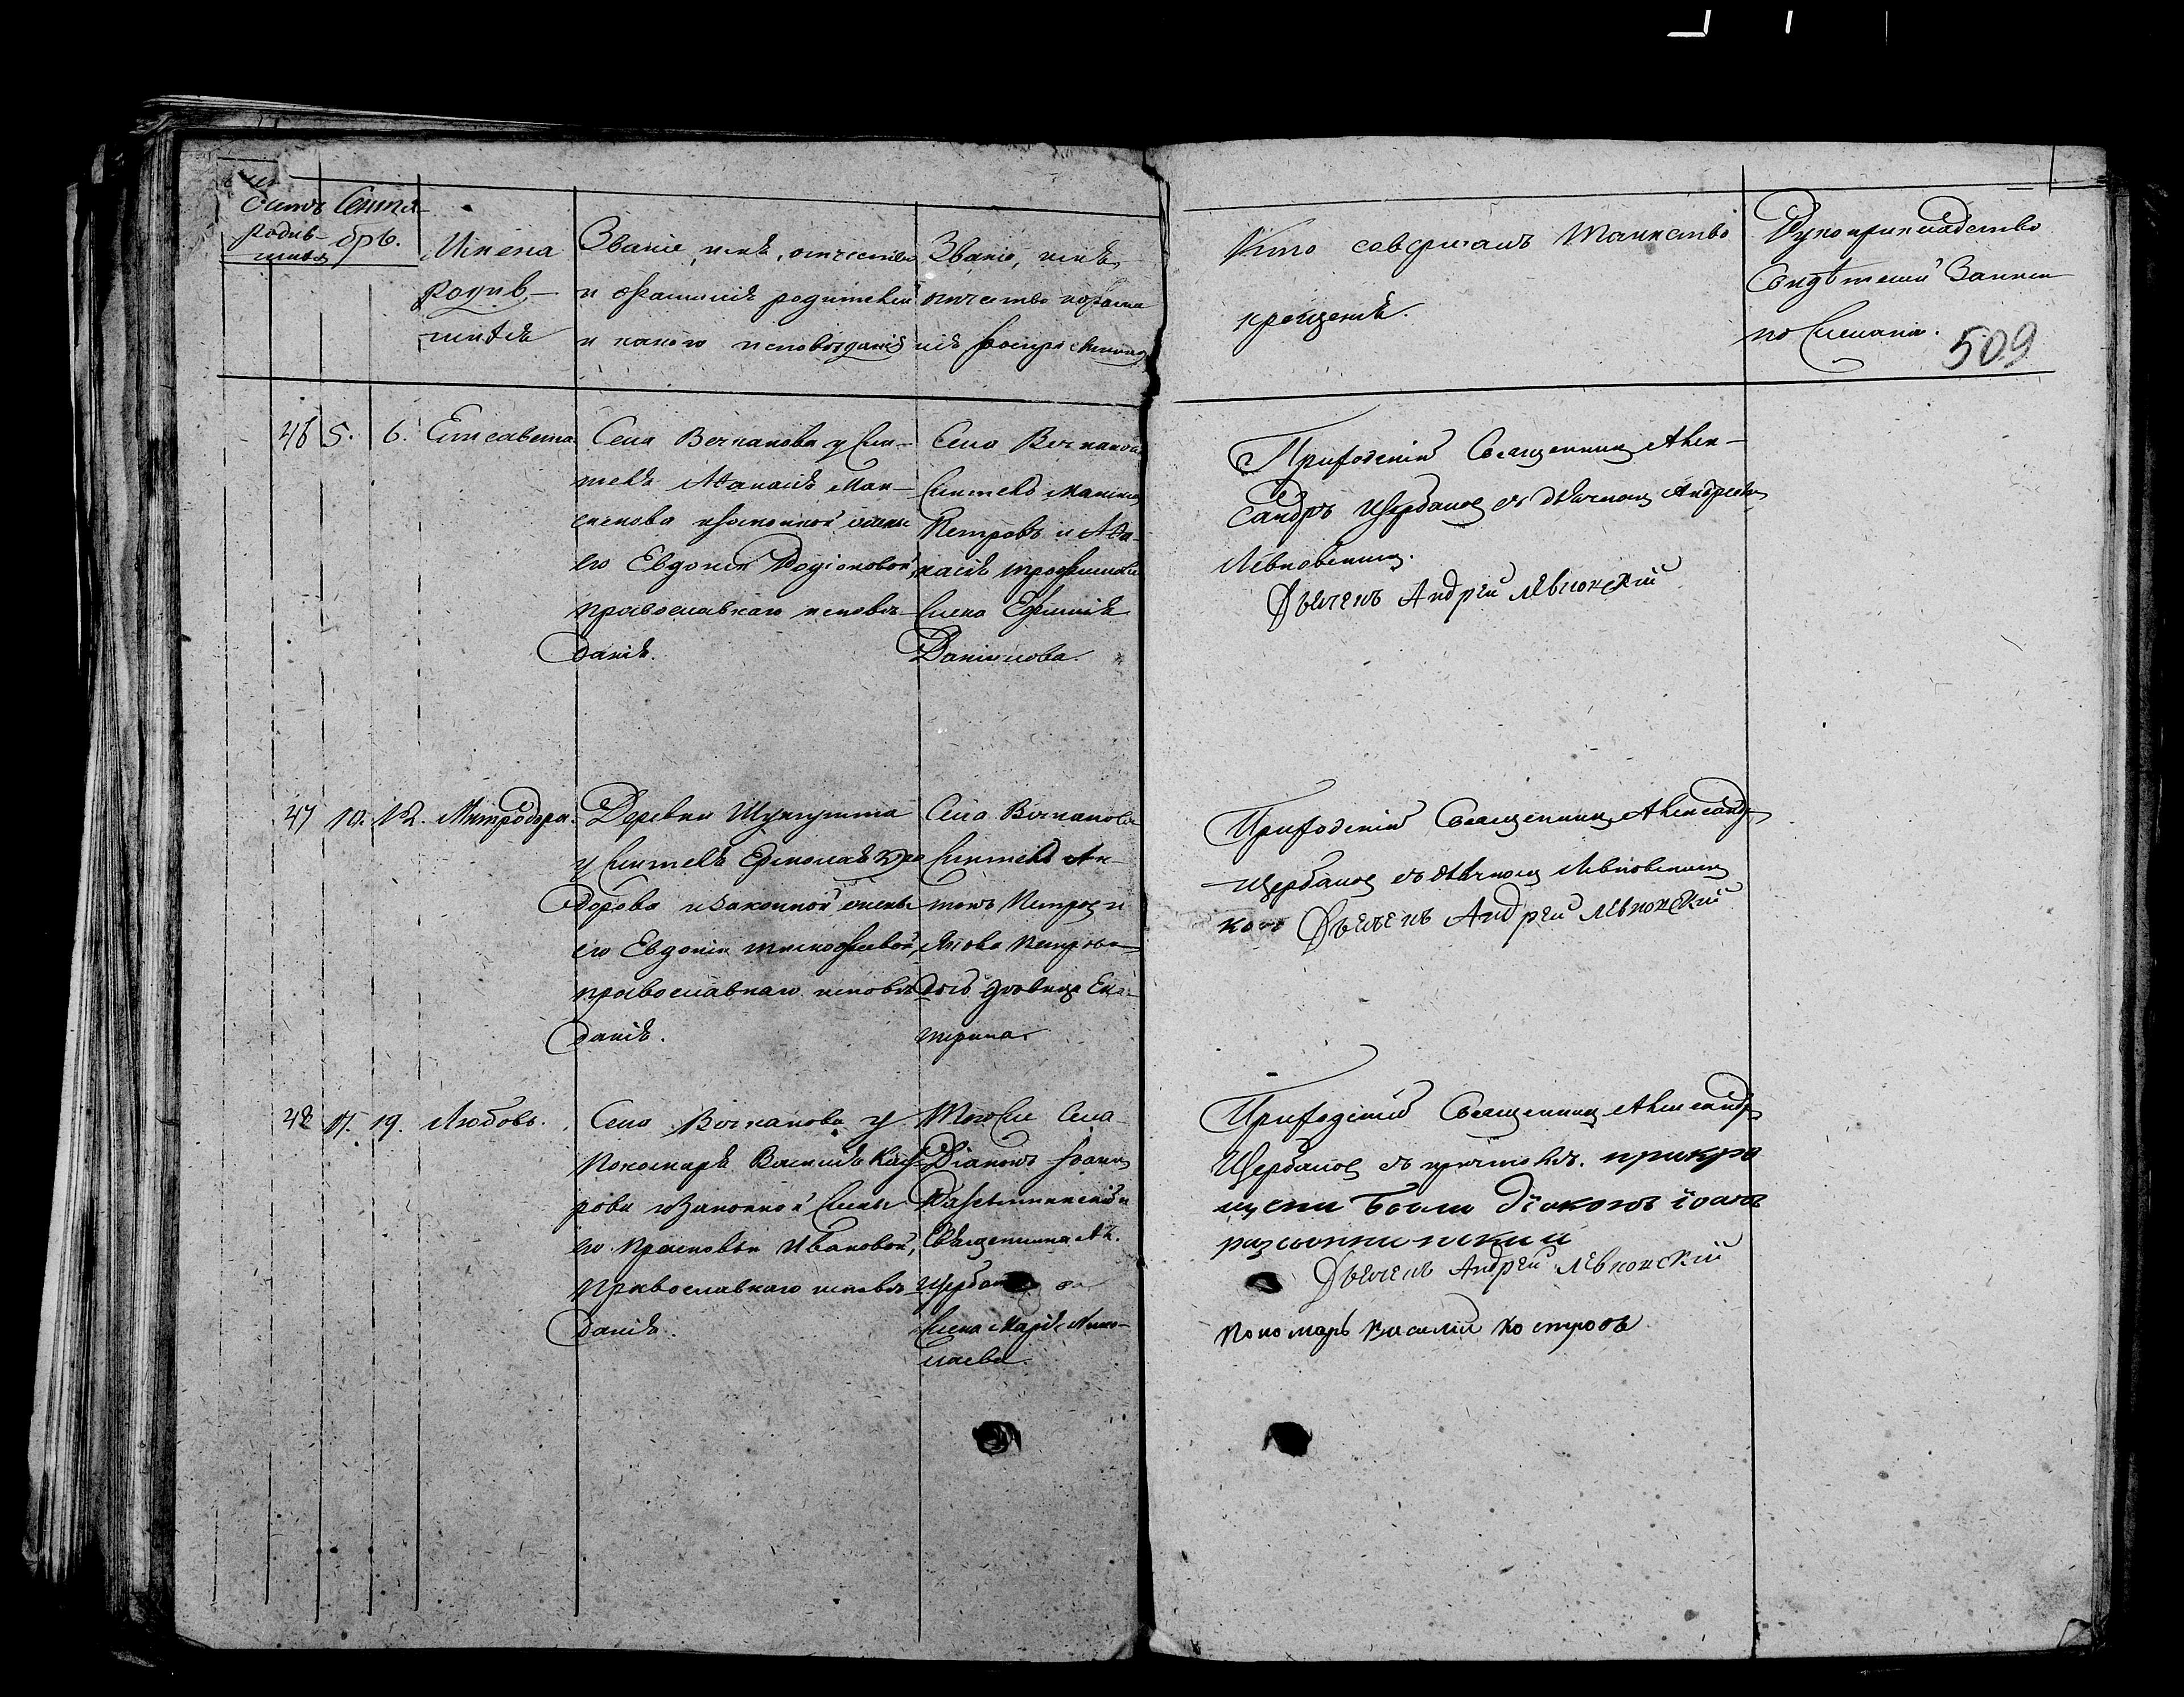 Счетъ Сентя-
родив- брь.
шихся
Имена
родив-
шихся
Званіе, имя, отчество
и фамилія родителей
и какого исповѣданія
Званіе, имя,
отчество и фами
лія воспріемниковъ
Кто совершалъ таинство
крещенія.
Рукоприкладство
свидѣтелей записи
по желанію.
509
46 5. 6. Елисавета.
Села Вочканова у жи-
теля Аѳанасія Мак-
симова и законной жены
его Евдокіи Родіоновой,
православнаго исповѣ-
данія.
Села Вочканова
житель Максимъ
Петровъ и Аѳа-
насія Трофимова
жена Ефимія
Даніилова.
Приходскій Священникъ Алек-
сандръ Щербаковъ съ дьячкомъ Андреемъ
Левковскимъ.
Дьячекъ Андрей Левковскій
47 10. 12. Митродора.
Деревни
у жителя Ермолая Ѳео
дорова и законной жены
его Евдокіи Тимофеевой,
православнаго исповѣ
данія.
Села Вочканова
житель Ан-
тонъ Петровъ и
Якова Петрова
дочь дѣвица Ека-
терина.
Приходскій Священникъ Александръ
Щербаковъ съ дьячкомъ Левковскимъ
Дьячекъ Андрей Левковскій
48 17. 19. Любовь.
Села Вочканова у
Пономаря Василія
рова и законной жены
его Прасковьи Ивановой,
Православнаго исповѣ-
данія.
Тогоже Села
Діаконъ Іоаннъ
и
Священника Ал.
жена Марія Нико-
лаева.
Приходскій Священникъ Александръ
Щербаковъ съ причтомъ. при кре
щени были діаконъ іоанъ
Дьячекъ Андрей Левковскій
пономарь василій